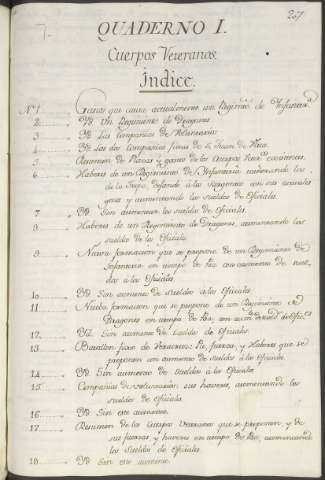 207
QUADERNO I.
Cuerpos Veteranos.
Indice.
Nº 1. Gastos que causa actualmente un Regimto de Infanteria
2. Yd. Un Regimiento de Dragones
3. Yd. Las Compañias de Voluntarios
4. Yd. Las dos Compañias fixas de S. Juan de
5. Resumen de Plazas y gastos de los Cuerpos
6. Haberes de un Regimiento de Infanteria
de la Tropa, dejando à los Regimientos con sus actuales
y aumentando los sueldos de Oficiales
7. Yd. Sin aumentar los sueldos de Oficiales
8. Haberes de un Regimiento de Dragones, aumentando los
sueldos de los Oficiales
9. Nueva formacion que se propone de un Regimiento de
Infanteria en tiempo de Paz con aumento de sueldos
à los Oficiales
10. Yd. Sin aumento de sueldos à los Oficiales
11. Nueva formacion que se propone de un Regimiento de
Dragones en tiempo de Paz, con
12. Yd. Sin aumento de sueldos de Oficiales
13. Batallon fixo de Veracruz: Pie, fuerza, y Haberes que se
proponen con aumento de sueldos à los Oficiales
14. Yd. Sin aumento de sueldos à los Oficiales
15. Compañias de Voluntarios sus haveres, aumentando los
sueldos de Oficiales
16. Yd. Sin este aumento
17. Resumen de los Cuerpos Veteranos que se proponen, y de
sus fuerzas, y haveres en tiempo de Paz, aumentando
los Sueldos de Oficiales
18. Yd. Sin este aumento